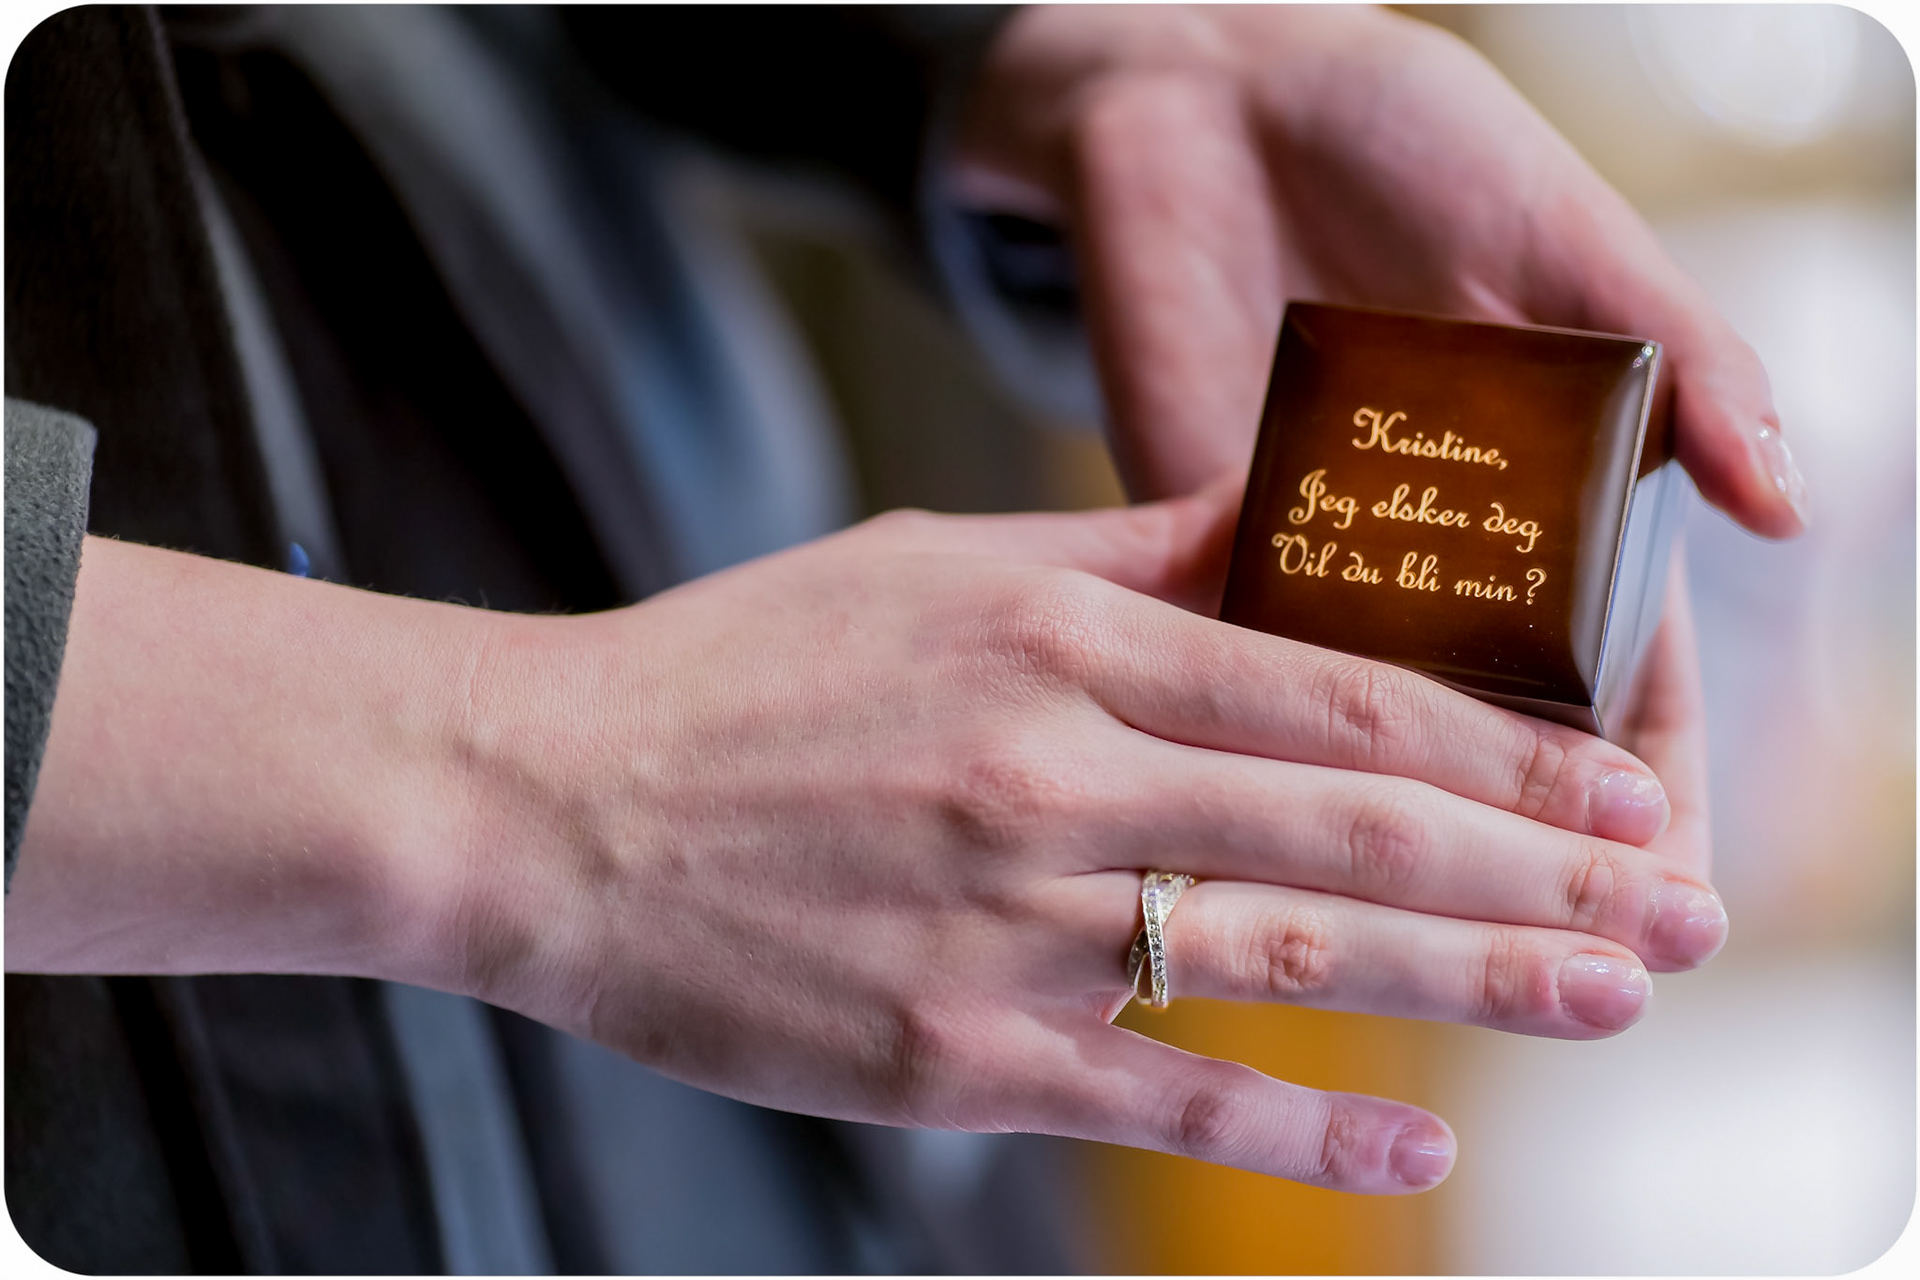 Kristine,
Jeg elsker deg
Vil du bli min?